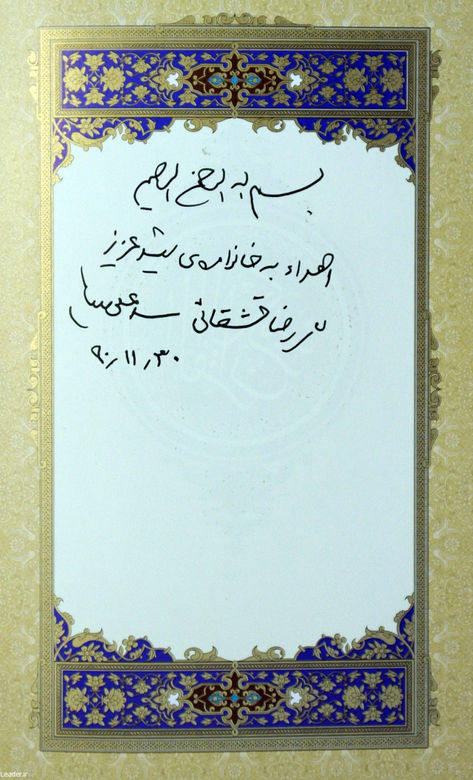 بسم الله الرحمن الرحیم
اهداء به خانواده‌ی شهید عزیز
رضا قشقائی سیدعلی خامنه‌ای
۹۰/۱۱/۳۰
Leader.ir